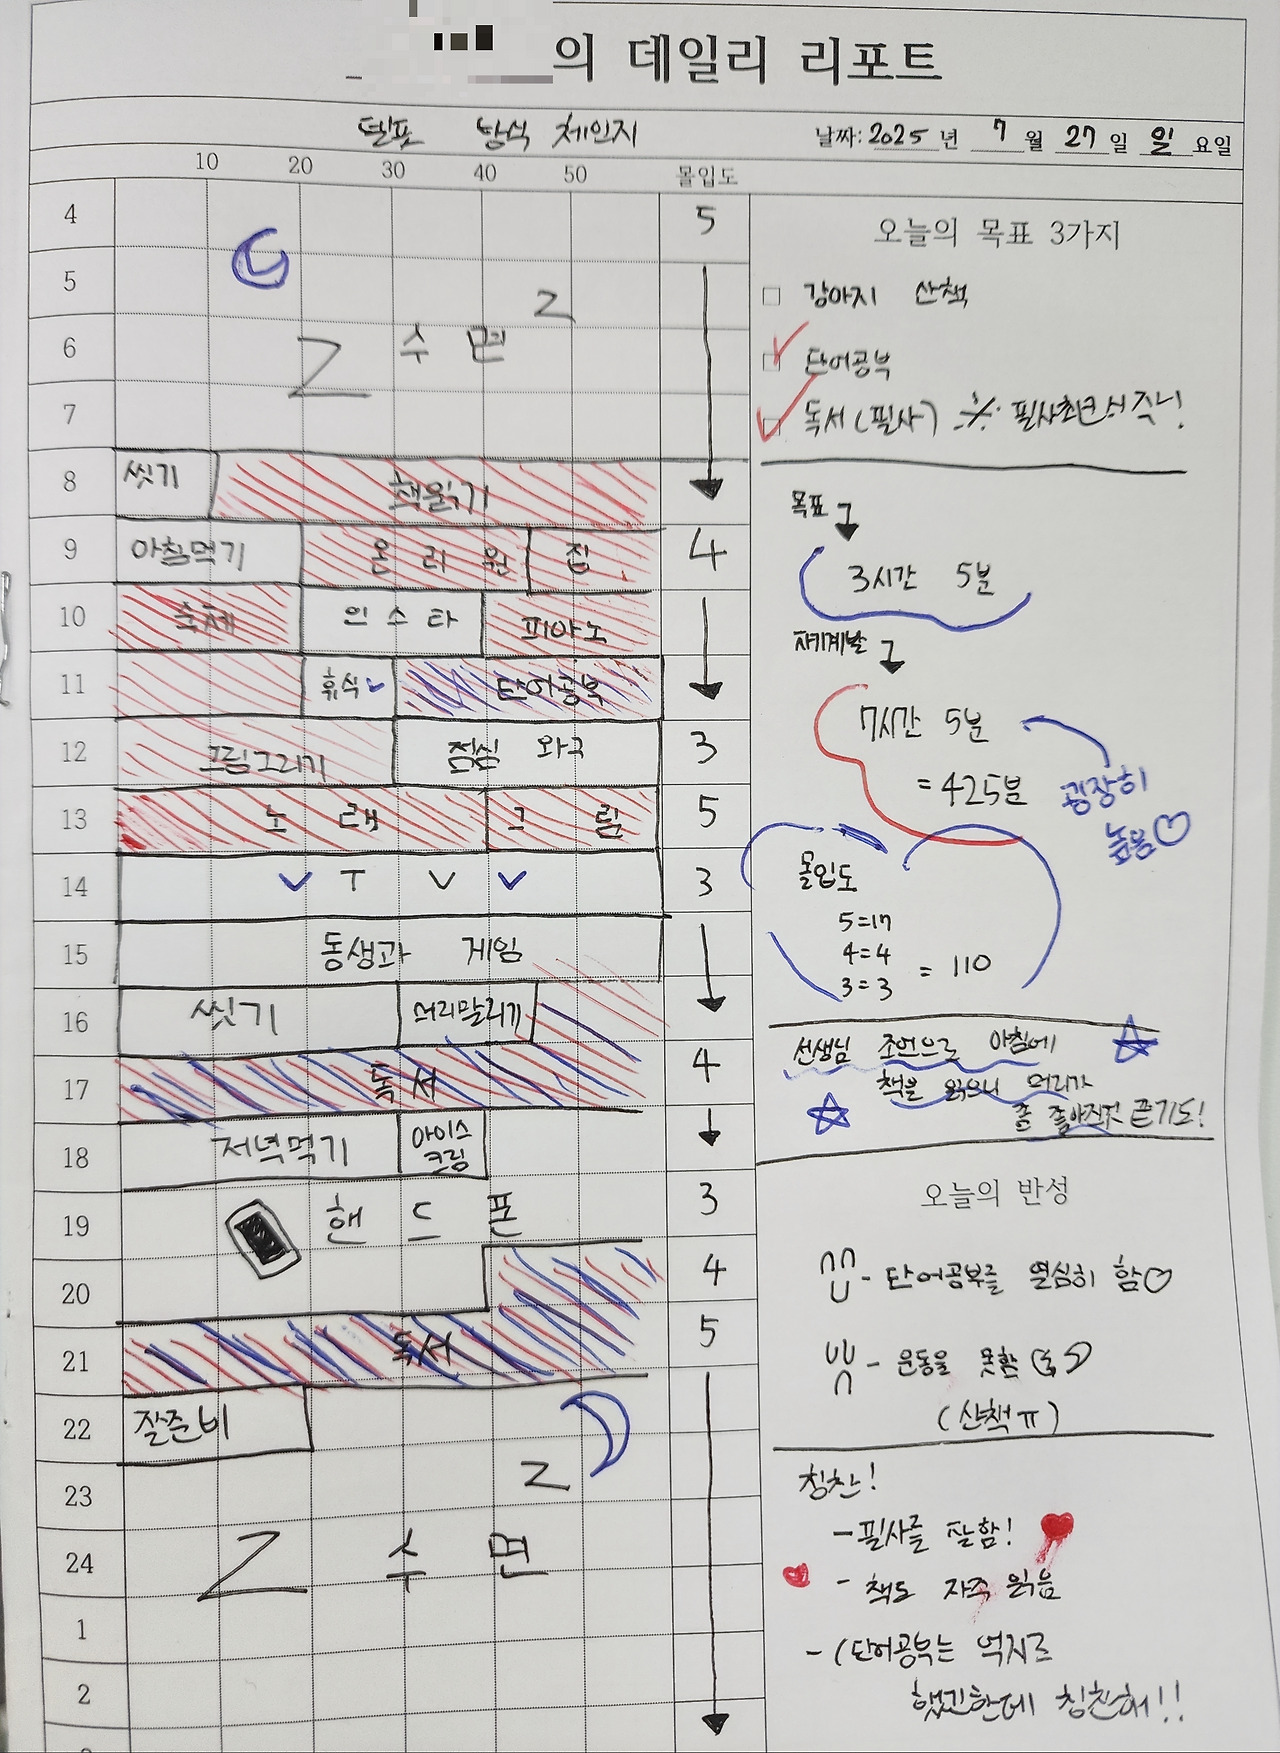 의 데일리 리포트
델포 방식 체인지
날짜: 2025 년 7 월 27 일 일 요일
10 20 30 40 50 몰입도
4 5
5 z
6 Z 수면
7
8 씻기 책읽기
9 아침먹기 온리원 집 4
10 숙제 인스타 피아노
11 휴식 단어공부
12 그림그리기 점심 와구 3
13 노래 그림 5
14 TV 3
15 동생과 게임
16 씻기 머리말리기
17 독서 4
18 저녁먹기 아이스크림
19 핸드폰 3
20 4
21 독서 5
22 잘준비
23 z
24 Z 수면
1
2
오늘의 목표 3가지
강아지 산책
단어공부
독서 (필사) ※ 필사최소
목표
3시간 5분
자기계발
7시간 5분
= 425분
굉장히
높음♡
몰입도
5=17
4=4
3=3
= 110
선생님 조언으로 아침에
책을 읽으니 머리가
좀 좋아진것 같기도!
오늘의 반성
- 단어공부를 열심히 함♡
- 운동을 못함
(산책ㅠ)
칭찬!
- 필사를 잘함!
- 책도 자주 읽음
- (단어공부는 억지로
했긴한데 칭찬해!!